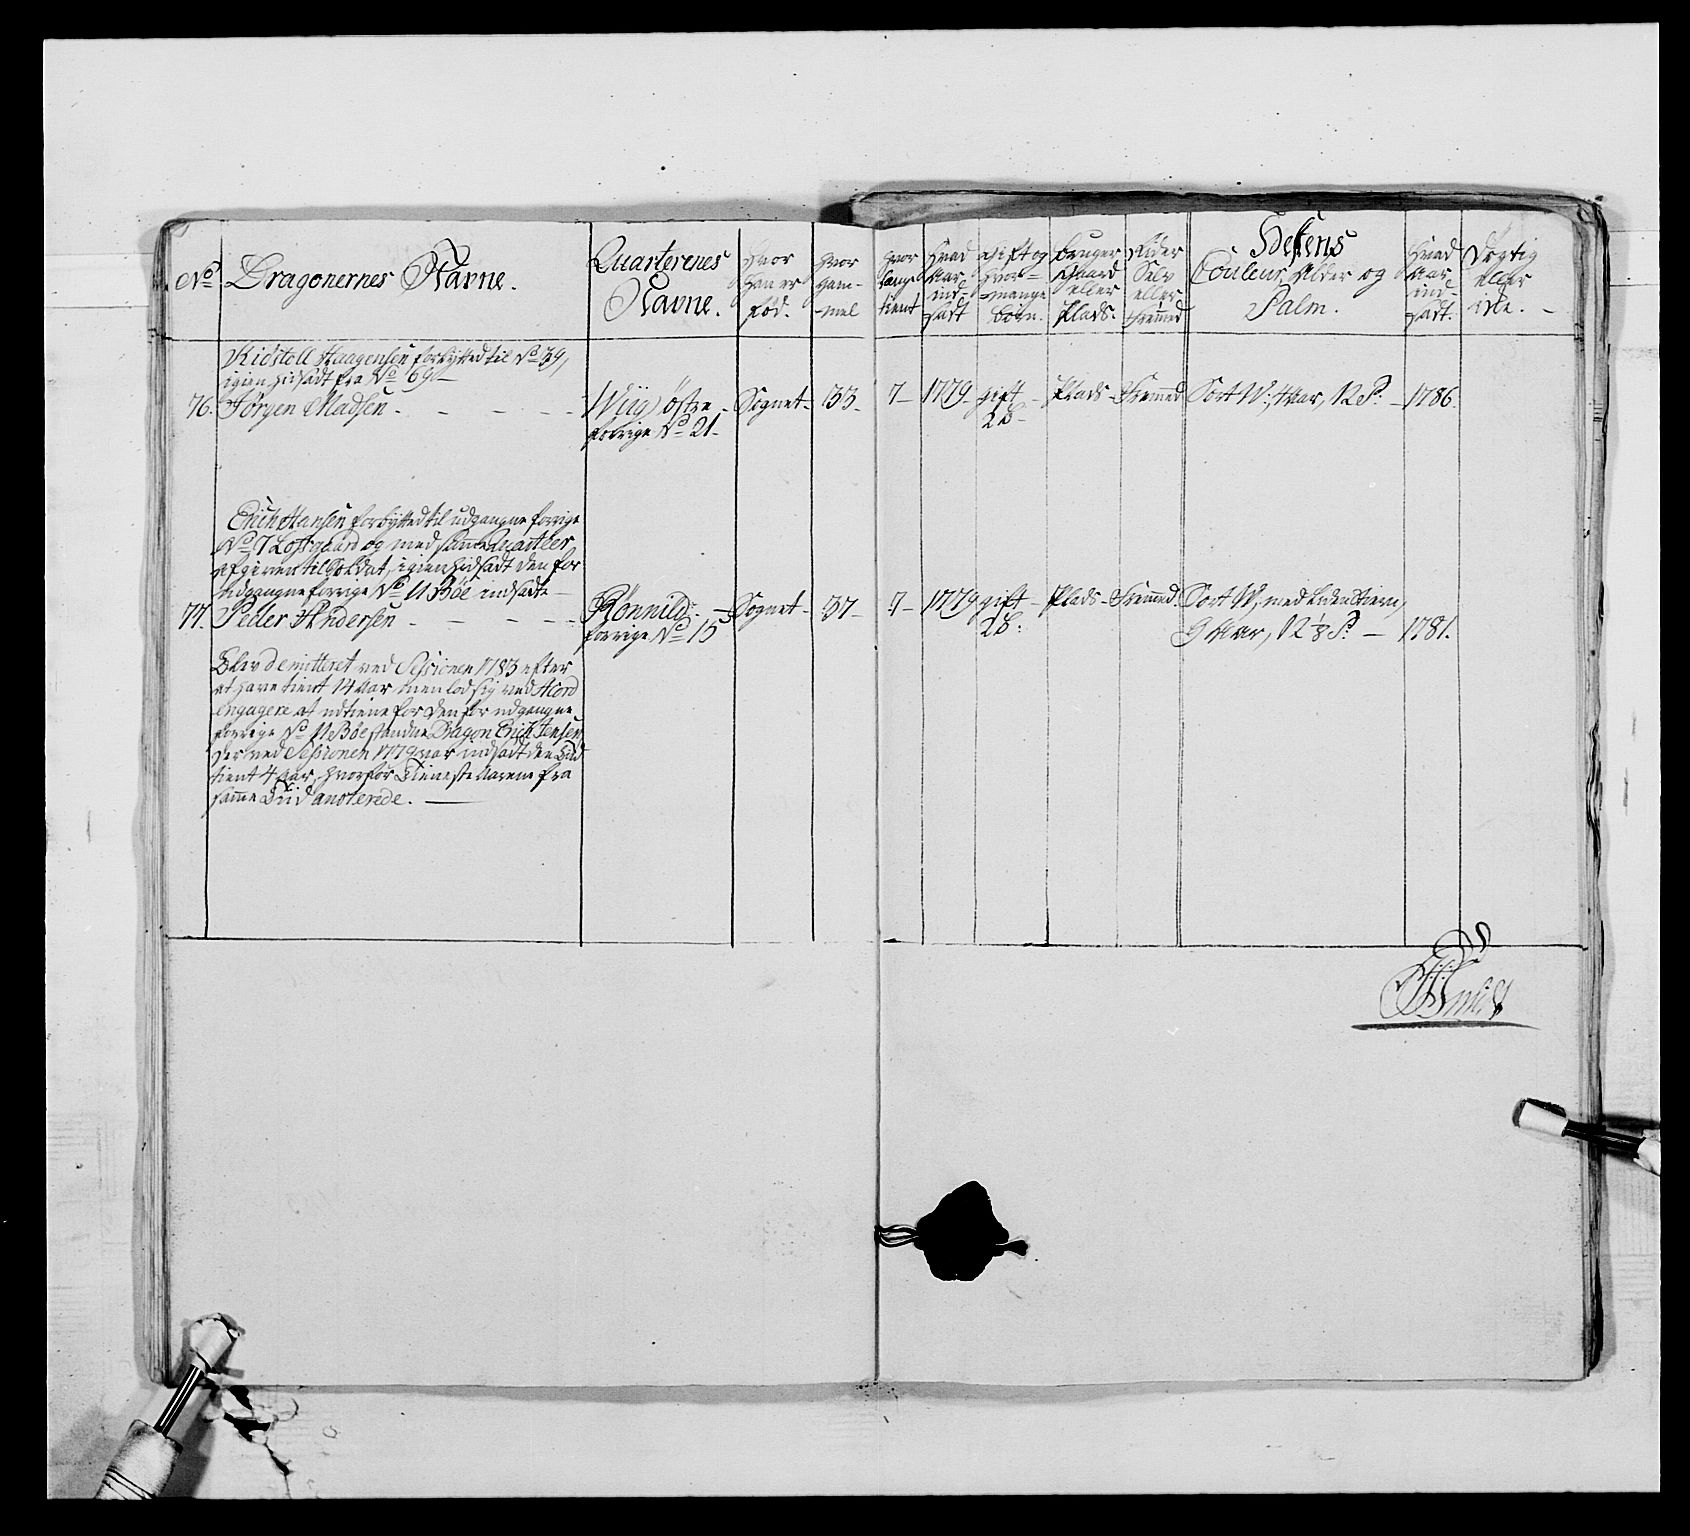 No
Dragonernes Navne.
Quarterenes
Navne.
hvor
han er
fød.
hvor
gam-
-mel
hvor
længe
tient
hvad
Aar
ind-
sadt
gift og
hvor-
-mange
børn.
bruger
Gaard
eller
Plads.
Rider
Selv
eller
fremmed
Hestens
Couleur, Alder og
Palm.
hvad
Aar
ind-
sadt.
Dygtig
eller
icke. -
Kidstell Haagensen forbytted til No 39,
igien hidsadt fra No 69 -
76. Jørgen Madsen - - - - -
Wiig østre -
forrige No 21 -
Sognet -
33 -
7 -
1779 -
gift -
2 b -
Plads -
fremmed
Sort W:, 4 Aar, 12 P: -
1786.
Erich Hansen forbytted til udgangne forrige
No 7 Lofsgaard og med samme Quarteer
afgiven til Soldat, igien hidsadt den for
udgangne forrige No 11 Bøe indsadte -
77. Peder Andersen - - - - -
Rønnild -
forrige No 15
Sognet -
37 -
7 -
1779
gift -
2 b:
Plads -
fremmed
Sort W, med liden Stiern,
9 Aar, 12 1/8 P: -
1781.
Blev demitteret ved Sessionen 1783 efter
at have tient 14 Aar, men lod sig ved Acord
engagere at udtiene for den for udgangne
forrige No 11 Bøe standne Dragon Erich Jensen
der ved Sessionen 1779 var indsadt den Tiid
tient 4 Aar, hvorfor Tieneste Aarene fra
samme Tiid anoterede. -